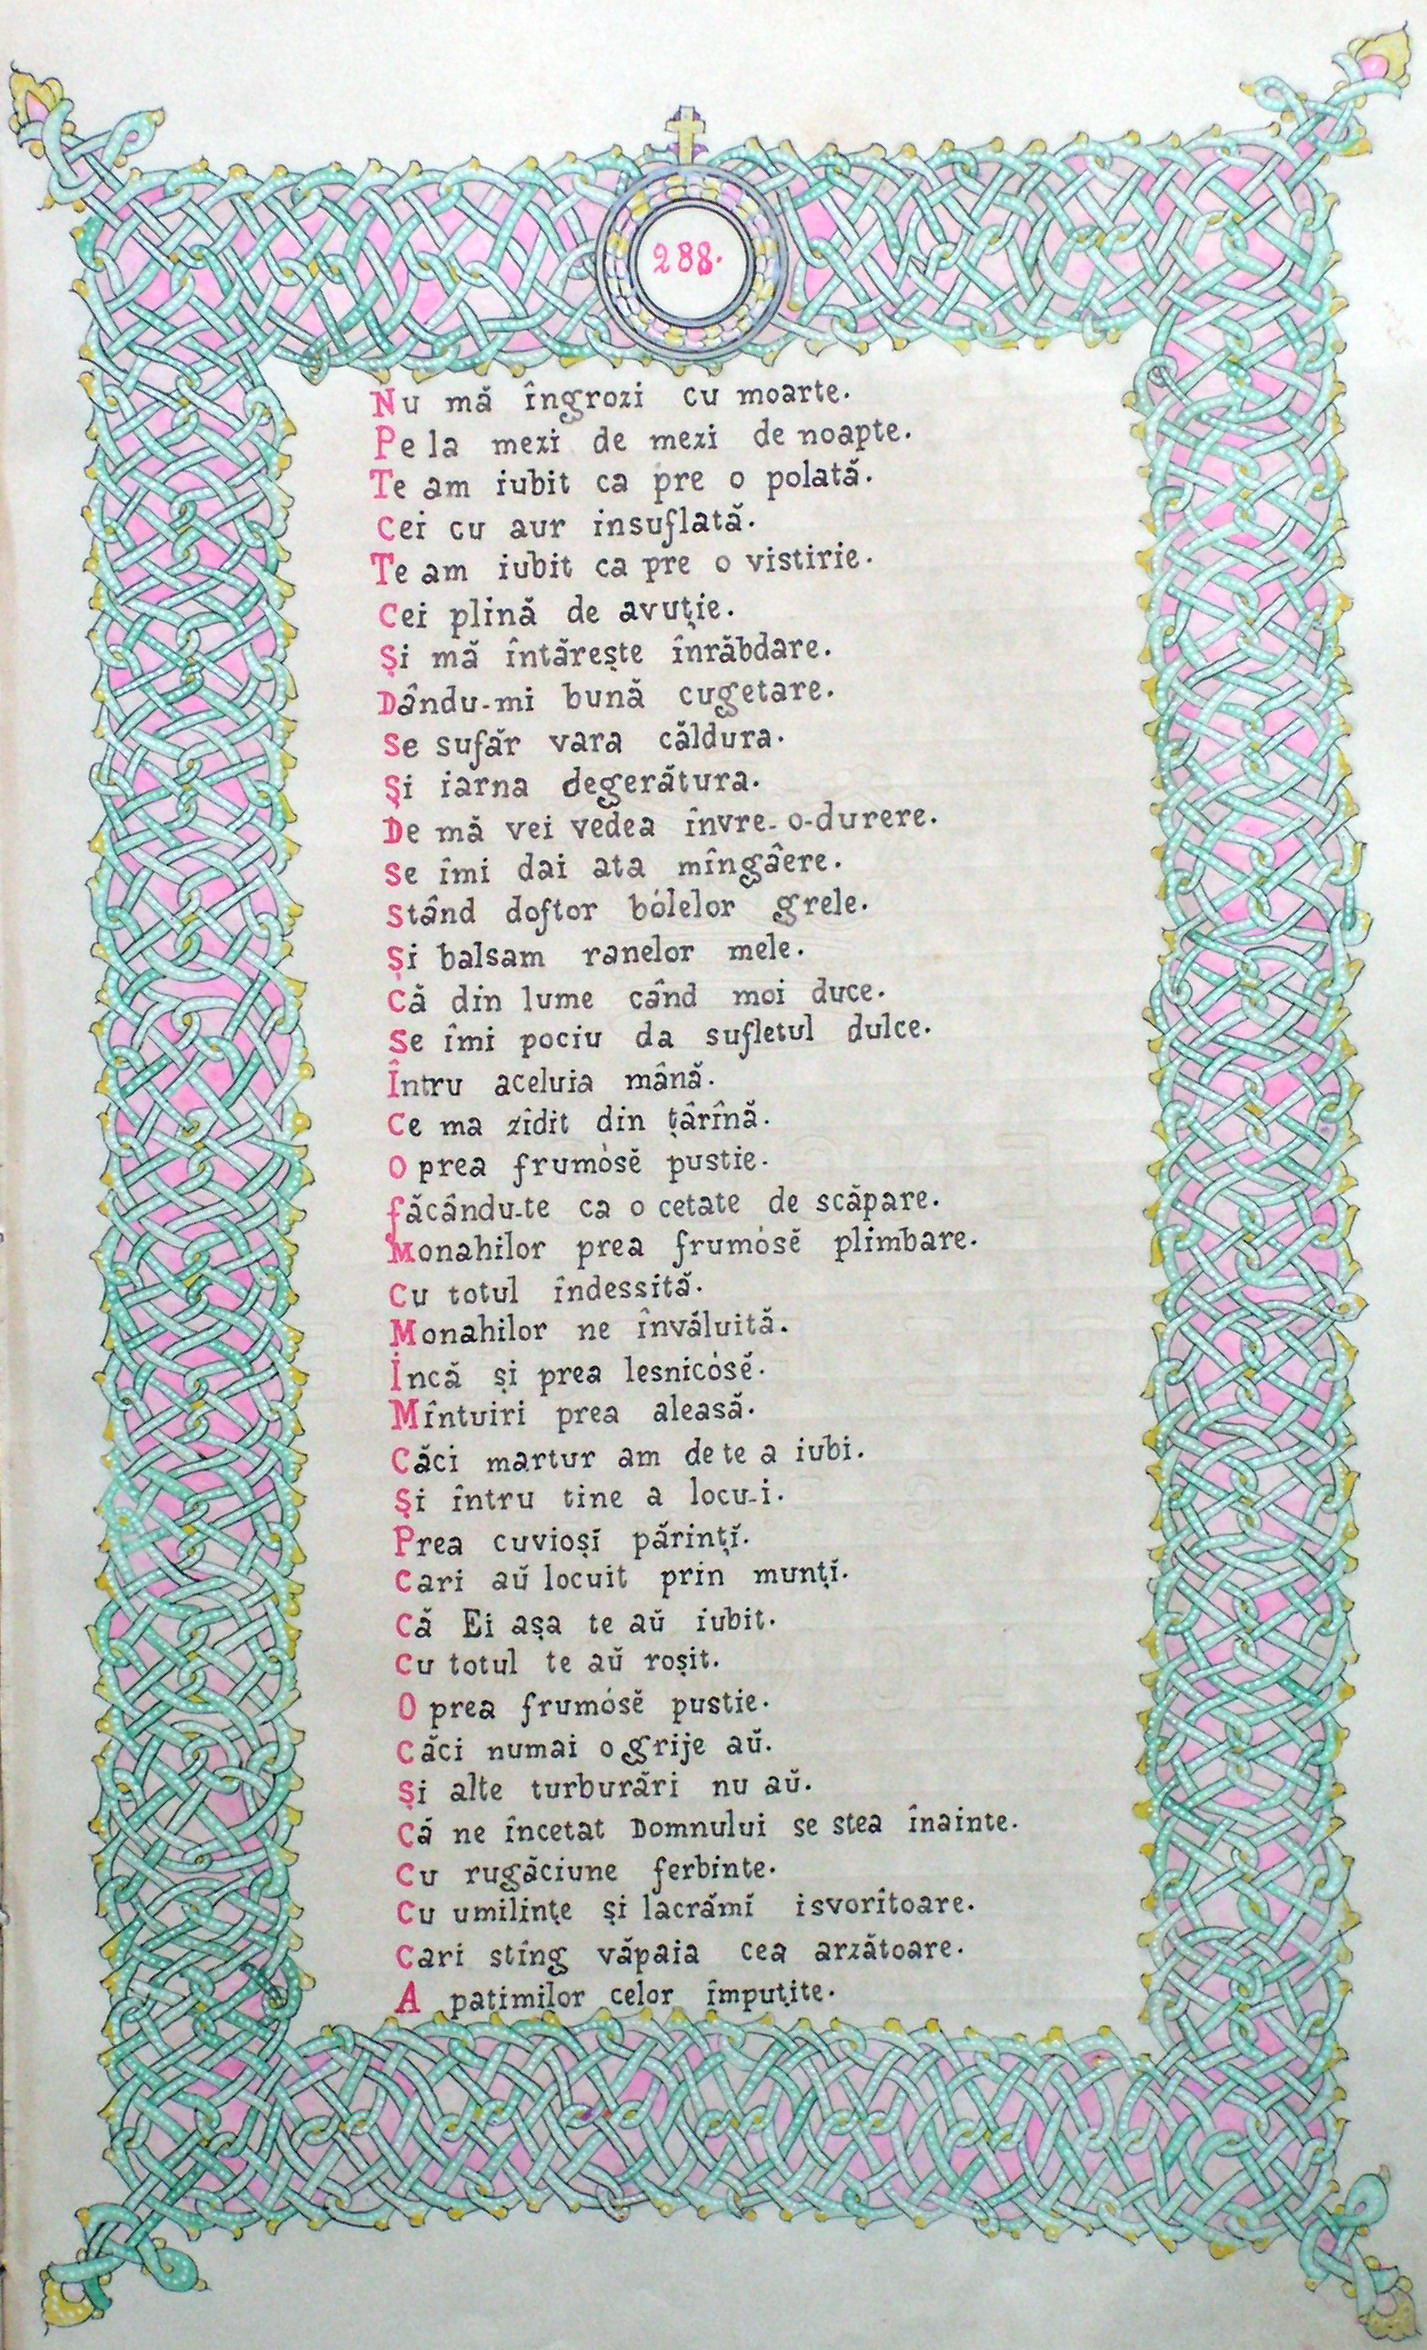 288.
Nu mă îngrozi cu moarte.
Pe la mezi de mezi de noapte.
Te am iubit ca pre o polată.
Cei cu aur insuflată.
Te am iubit ca pre o vistirie.
Cei plină de avuție.
Și mă întărește înrăbdare.
Dându-mi bună cugetare.
Se sufăr vara căldura.
Și iarna degerătura.
De mă vei vedea învre-o-durere.
Se îmi dai ata mîngâere.
Stând doftor bólelor grele.
Și balsam ranelor mele.
Că din lume când moi duce.
Se îmi pociu da sufletul dulce.
Întru aceluia mână.
Ce ma zîdit din țârînă.
O prea frumósĕ pustie.
făcându-te ca o cetate de scăpare.
Monahilor prea frumósĕ plimbare.
Cu totul îndessită.
Monahilor ne învăluită.
Încă și prea lesnicósĕ.
Mîntuiri prea aleasă.
Căci martur am de te a iubi.
Și întru tine a locu-i.
Prea cuvioșĭ părințĭ.
Cari aŭ locuit prin munțĭ.
Că Ei așa te aŭ iubit.
Cu totul te aŭ roșit.
O prea frumósĕ pustie.
Căci numai o grije aŭ.
Și alte turburări nu aŭ.
Că ne încetat Domnului se stea înainte.
Cu rugăciune ferbinte.
Cu umilințe și lacrămĭ isvorîtoare.
Cari stîng văpaia cea arzătoare.
A patimilor celor împuțite.